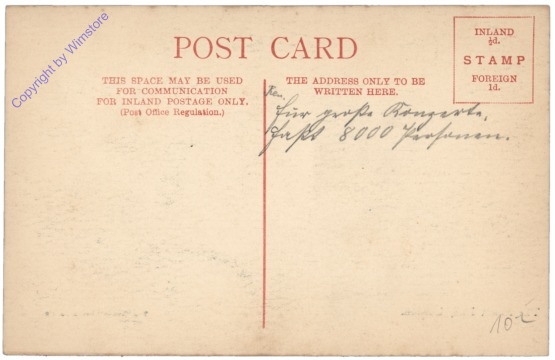 Copyright by Wimstore
POST CARD
THIS SPACE MAY BE USED
FOR COMMUNICATION
FOR INLAND POSTAGE ONLY.
(Post Office Regulation.)
THE ADDRESS ONLY TO BE
WRITTEN HERE.
INLAND
½d.
STAMP
FOREIGN
1d.
Für große Konzerte,
faßt 8000 Personen.
10